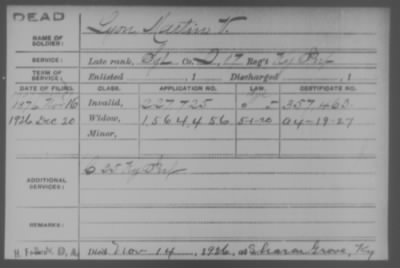 DEAD
NAME OF SOLDIER: Lyon Martin V.
SERVICE: Late rank, Sgt Co. D, 17 Reg't Ky Inf
TERM OF SERVICE: Enlisted , 1 Discharged , 1
DATE OF FILING. CLASS. APPLICATION NO. LAW. CERTIFICATE NO.
1876 Nov 16 Invalid, 227725 357463
1926 Dec 20 Widow, 1,564,456 5-1-20 A4-19-27
Minor,
ADDITIONAL SERVICES: C 25 Ky Inf
REMARKS:
Died Nov 14, 1926, at Sharon Grove, Ky